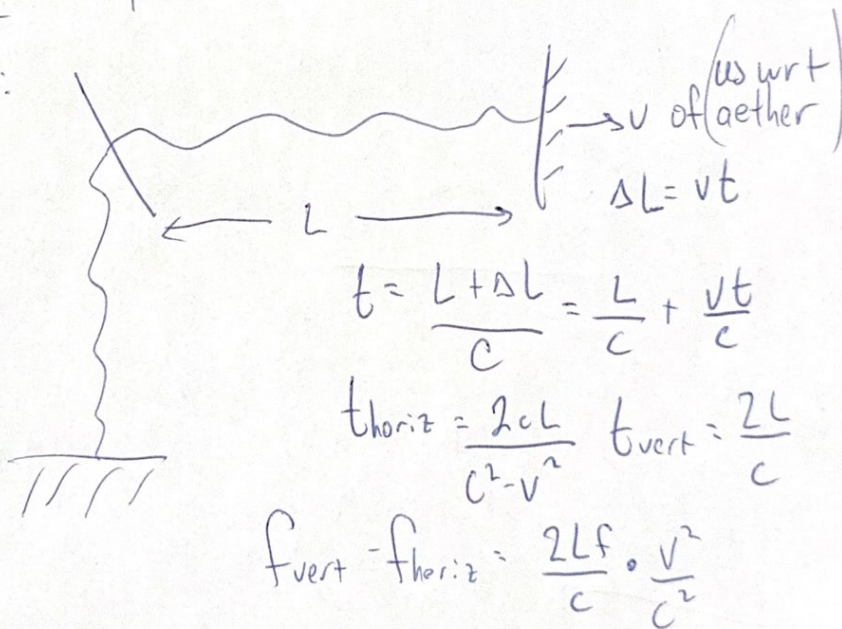 :
→ v of (us wrt
aether)
ΔL = vt
L
t = (L + ΔL)/c = L/c + vt/c
t_horiz = 2cL/(c² - v²) t_vert = 2L/c
f_vert - f_horiz = 2Lf/c · v²/c²